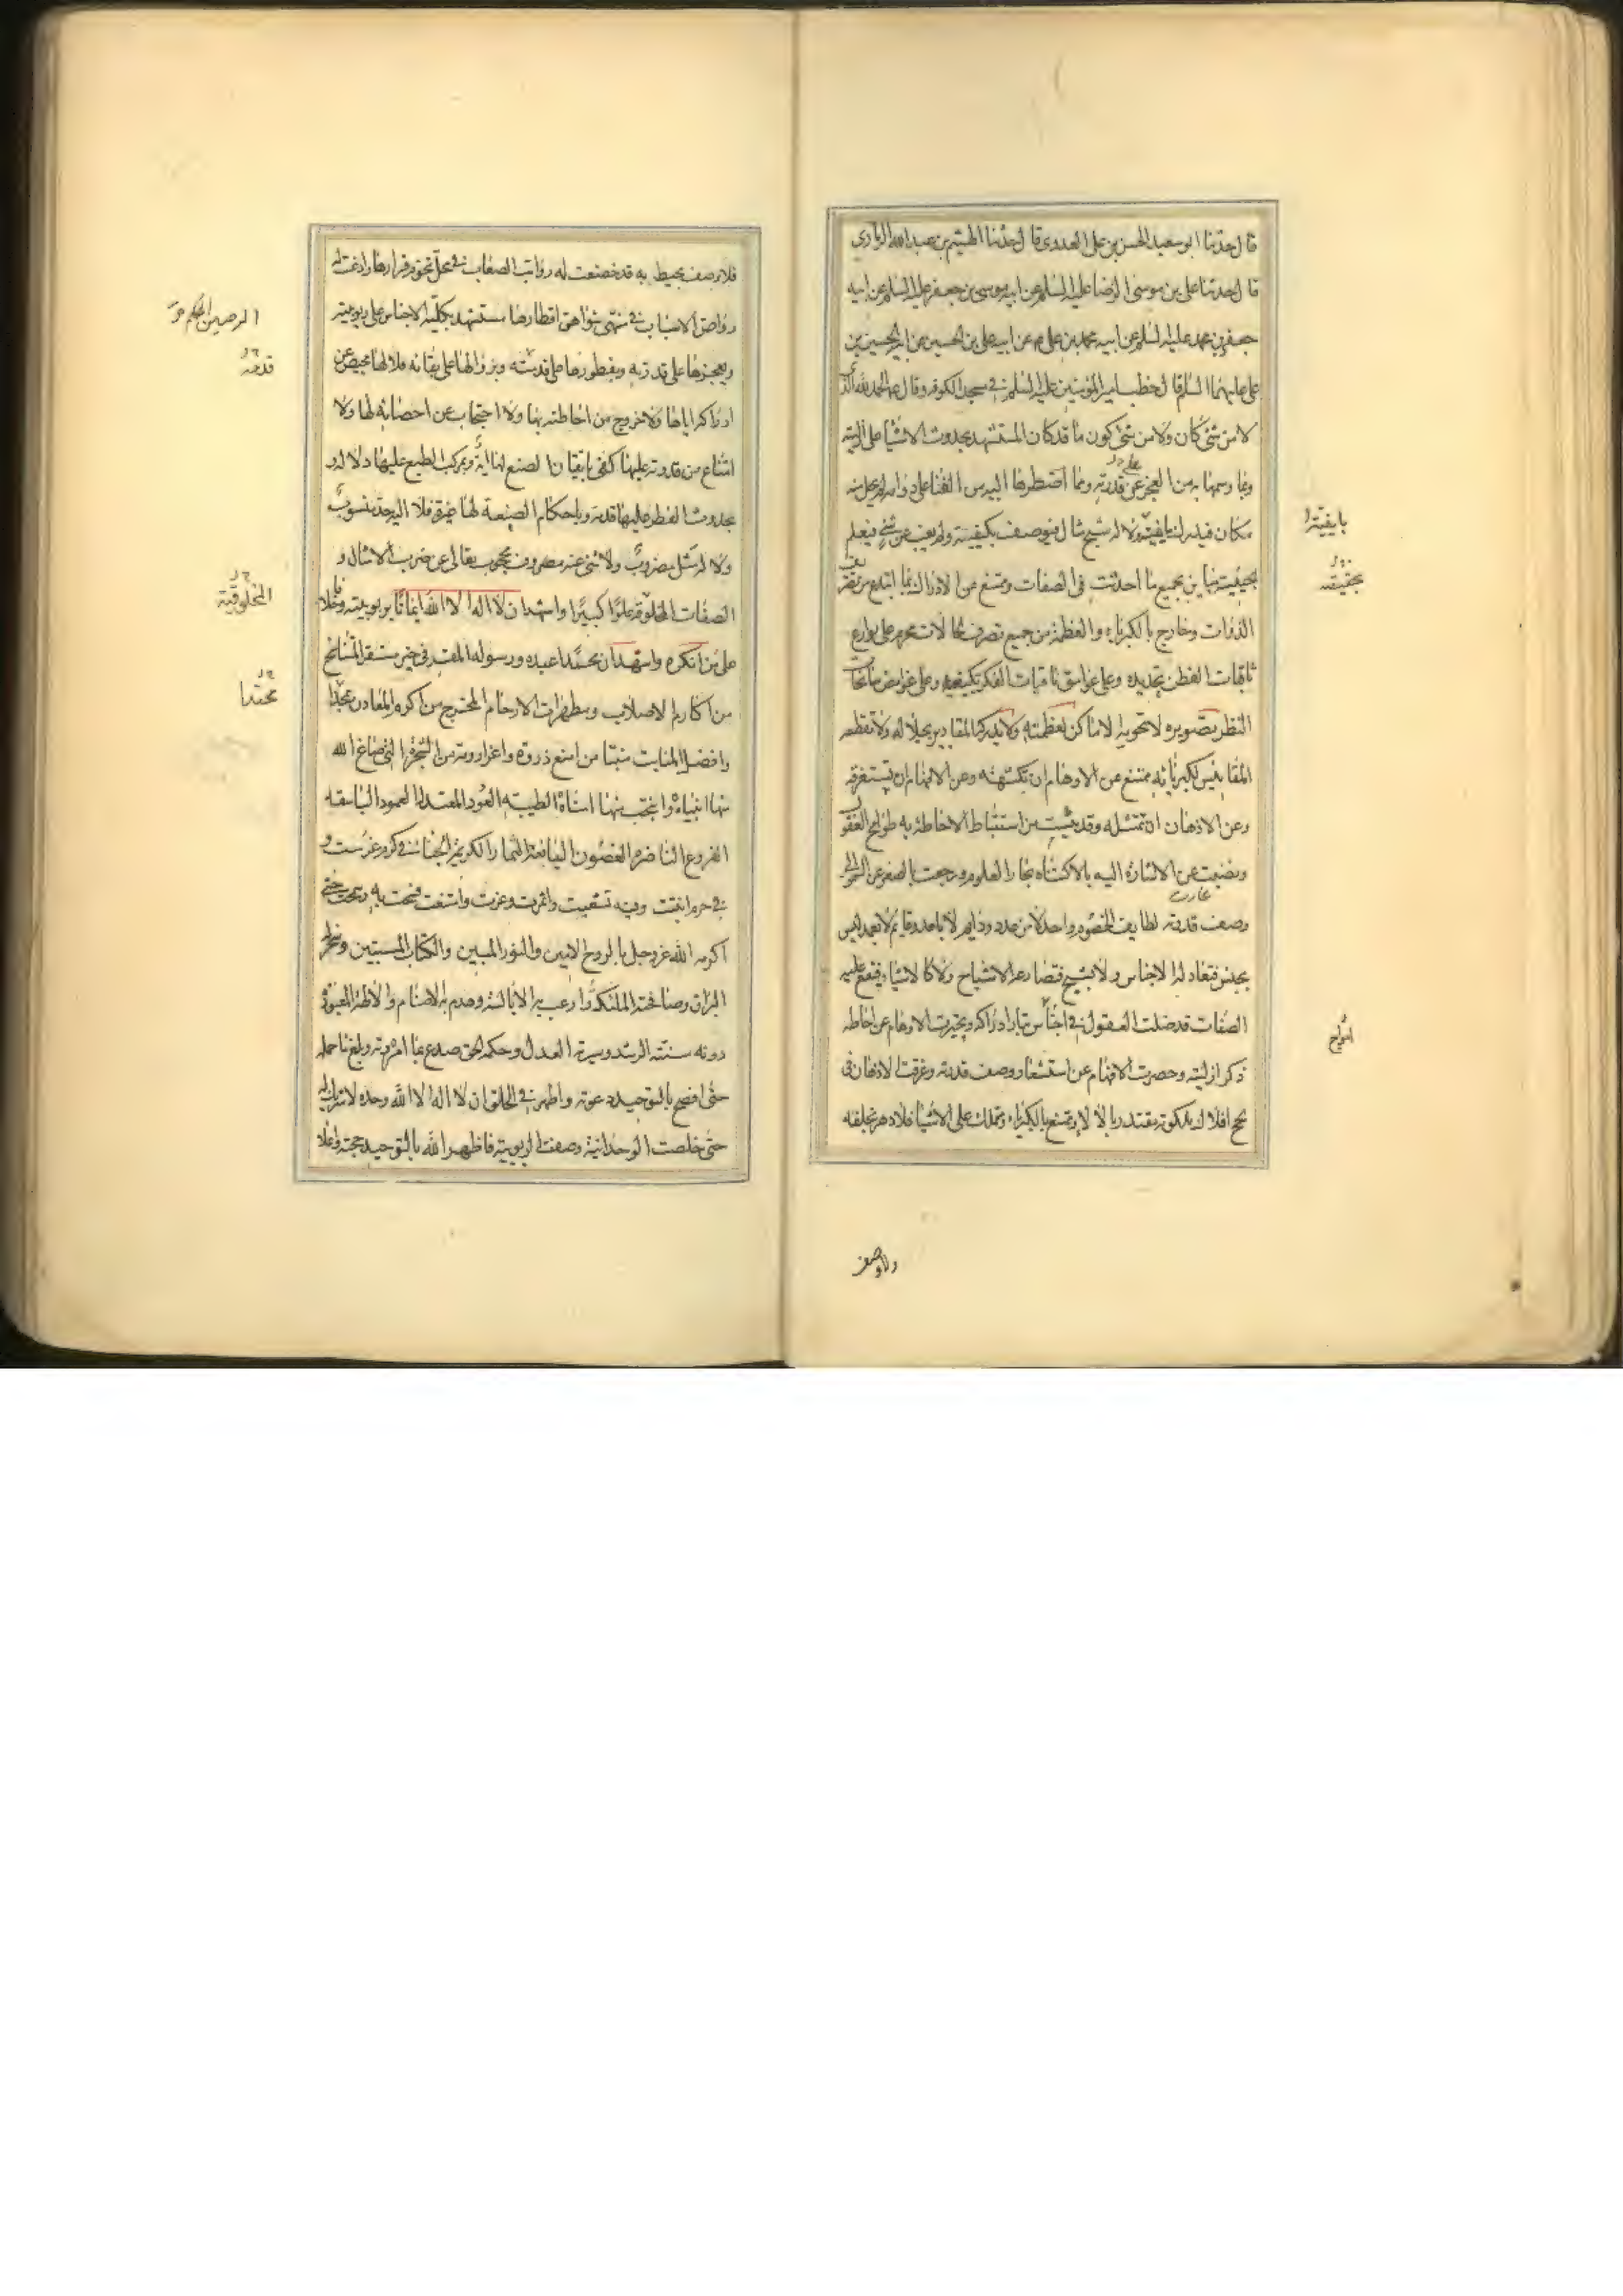 قال حدثنا ابو سعيد الحسن بن علی العدوی قال حدثنا الهيثم بن عبد الله الرمادی
قال حدثنا علی بن موسی الرضا عليه السلم عن ابيه موسی بن جعفر عليه السلم عن ابيه
جعفر بن محمد عليه السلم عن ابيه محمد بن علی عن ابيه علی بن الحسين عن ابيه الحسين بن
علی عليهما السلم قال خطب امير المؤمنين عليه السلم فی مسجد الكوفه وقال الحمد لله الذی
لا من شئ كان ولا من شئ كون ما قد كان المستشهد بحدوث الاشيا علی ازليته
وبما وسمها به من العجز عن قدرته وبما اضطرها اليه من الفنا علی دوامه لم يخل منه
علی
مكان فيدرك باينيته ولا له شبح مثال فيوصف بكيفيته ولم يغب عن شئ فيعلم
باينيته
بحيثيته مباين بجميع ما احدثت فی الصفات وممتنع عن الادراك بما ابتدع من تصرف
بحقيقته
الذوات وخارج بالكبرياء والعظمة من جميع تصرف الحالات محرم علی بوارع
ثاقبات الفطن تحديده وعلی عوامق ثاقبات الفكر تكييفه وعلی غوامض سابحات
النظر تصويره لا تحويه الاماكن لعظمته ولا تدركه المقادير بجلاله ولا تقطعه
المقاييس لكبريائه ممتنع عن الاوهام ان تكتنهه وعن الافهام ان تستغرقه
وعن الاذهان ان تمثله وقد يئست من استنباط الاحاطة به طوامح العقول
ونضبت عن الاشارة اليه بالاكتناه بحار العلوم ورجعت بالصغر عن السمو الی
وصف قدرته لطايف الخصوم واحد لا من عدد ودايم لا بامد وقايم لا بعمد ليس
بجنس فتعادله الاجناس ولا بشبح فتضارعه الاشباح ولا كالاشياء فتقع عليه
الصفات قد ضلت العقول فی امواج تيار ادراكه وتحيرت الاوهام عن احاطة
امواج
ذكر ازليته وحصرت الافهام عن استشعار وصف قدرته وغرقت الاذهان فی
لجج افلاك ملكوته مقتدر بالالاء وممتنع بالكبرياء ومتملك علی الاشيا فلا دهر يخلقه
ولا وصف
فلا وصف يحيط به قد خضعت له رواتب الصعاب فی محل تخوم قرارها واذعنت له
رواصن الاسباب فی منتهی شواهق اقطارها مستشهد بكلية الاجناس علی ربوبيته
وبعجزها علی قدرته وبفطورها علی قدمته وبزوالها علی بقائه فلا لها محيص عن
قدمته
ادراكه اياها ولا خروج من احاطته بها ولا احتجاب عن احصائه لها ولا
امتناع من قدرته عليها كفی باتقان الصنع لها اية وبمركب الطبع عليها دلالة و
بحدوث الفطر عليها قدمة وباحكام الصنعة لها عبرة فلا اليه حد منسوب
ولا له مثل مضروب ولا شئ عنه محجوب تعالی عن ضرب الامثال و
الصفات المخلوقة علوا كبيرا واشهد ان لا اله الا الله ايمانا بربوبيته وخلافا
المخلوقية
علی من انكره واشهد ان محمدا عبده ورسوله المقر فی خير مستقر المتناسخ
من اكارم الاصلاب ومطهرات الارحام المخرج من اكرم المعادن محتدا
محتدا
وافضل المنابت منبتا من امنع ذروة واعز ارومة من الشجرة التی صاغ الله
منها انبياءه وانتجب منها امناءه الطيبة العود المعتدلة العمود الباسقة
الفروع الناضرة الغصون اليانعة الثمار الكريمة الجنا فی كرم غرست و
فی حرم انبتت وفيه تشعبت واثمرت وعزت وامتنعت فسمت به وشمخت حتی
اكرمه الله عز وجل بالروح الامين والنور المبين والكتاب المستبين وسخر له
البراق وصافحته الملئكة وارعب به الابالسة وهدم به الاصنام والالهة المعبودة
دونه سنته الرشد وسيرته العدل وحكمه الحق صدع بما امره ربه وبلغ ما حمله
حتی افصح بالتوحيد دعوته واظهر فی الخلق ان لا اله الا الله وحده لا شريك له
حتی خلصت الوحدانية وصفت الربوبية فاظهر الله بالتوحيد حجته واعلا